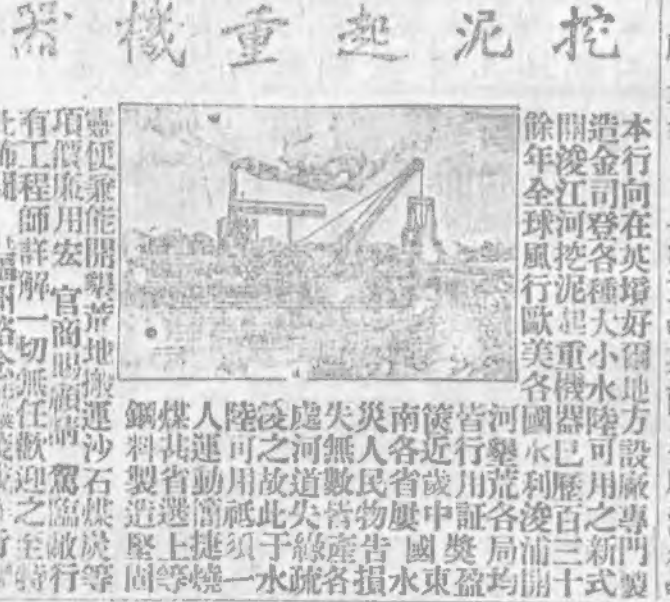 挖泥起重機器
本行向在英壋好爾地方設廠專門製
造金司登各種大小水陸可用之新式
開浚江河挖泥起重機器已歷百三十
餘年全球風行歐美各國水利浚浦開
河舉荒各局均
皆行用証獎盈
篋近歲中國東
南各省屢告水
災人民物產損
失無數皆各
處河道失疏
浚之故此于水
陸可用祗須一
人運動簡捷燒
煤甚省選上等
鋼料製造堅固
靈便兼能開墾荒地搬運沙石煤炭等
項價廉用宏 官商賜顧請 駕臨敝行
有工程師詳解一切無任歡迎之至特